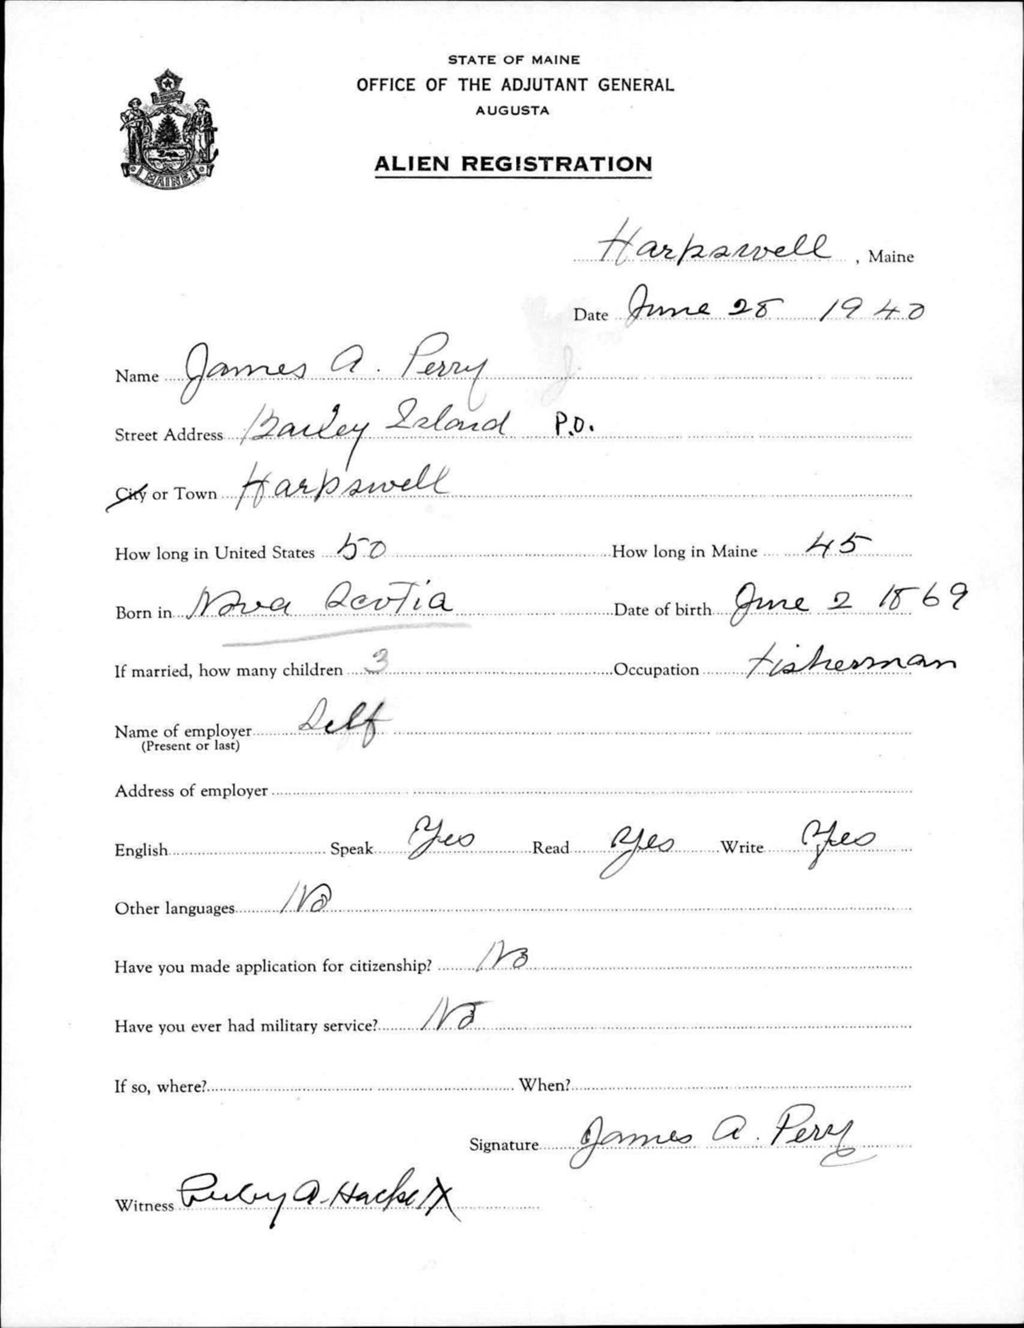 STATE OF MAINE
OFFICE OF THE ADJUTANT GENERAL
AUGUSTA
ALIEN REGISTRATION
MAINE
Harpswell, Maine
Date June 28 1940
Name James A. Perry
Street Address Bailey Island P.O.
City or Town Harpswell
How long in United States 50 How long in Maine 45
Born in Nova Scotia Date of birth June 2 1869
If married, how many children 3 Occupation Fisherman
Name of employer Self
(Present or last)
Address of employer
English Speak Yes Read Yes Write Yes
Other languages No
Have you made application for citizenship? No
Have you ever had military service? No
If so, where? When?
Signature James A. Perry
Witness Ruby A. Hackett